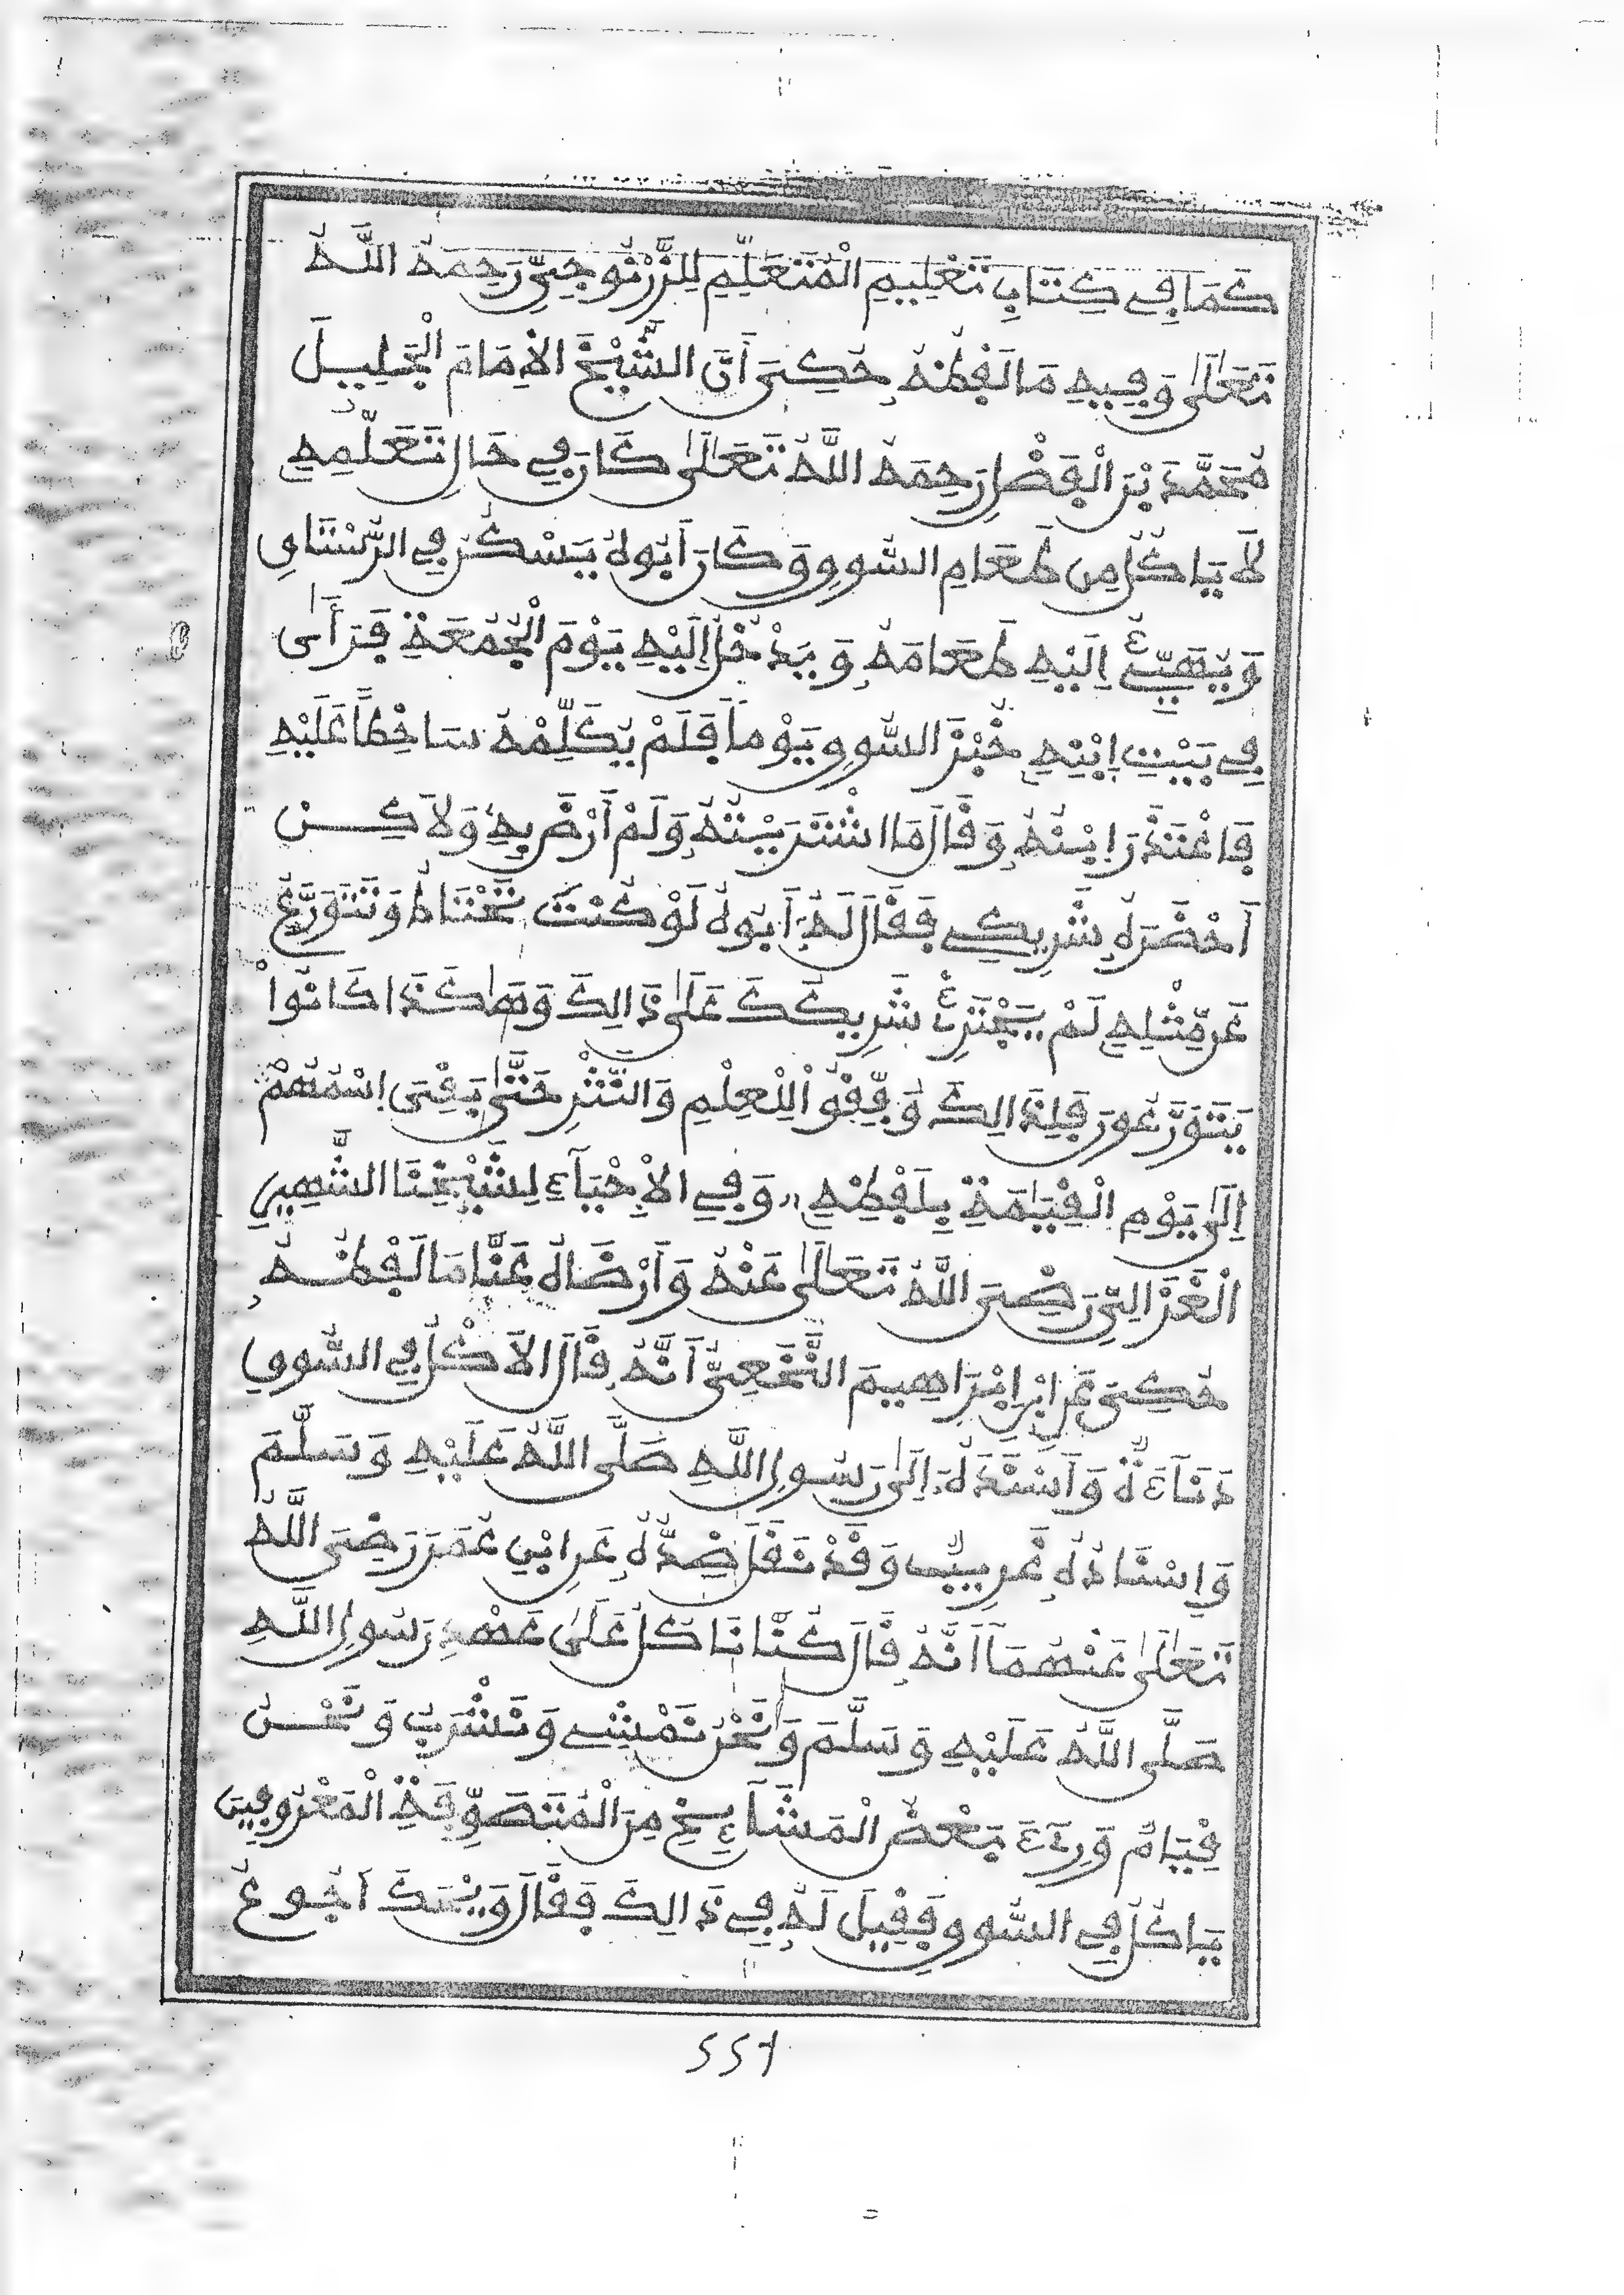 كَمَا فِي كِتَابِ تَعْلِيمِ الْمُتَعَلِّمِ لِلزَّرْنُوجِيِّ رَحِمَهُ اللَّهُ
تَعَالَىٰ وَفِيهِ مَا لَفْظُهُ حُكِيَ أَنَّ الشَّيْخَ الْإِمَامَ الْجَلِيلَ
مُحَمَّدَ بْنَ الْفَضْلِ رَحِمَهُ اللَّهُ تَعَالَىٰ كَانَ فِي حَالِ تَعَلُّمِهِ
لَا يَاكُلُ مِن طَعَامِ السُّوقِ وَكَانَ أَبُوهُ يَسْكُنُ فِي الرُّسْتَاقِ
وَيُهَيِّئُ إِلَيْهِ طَعَامَهُ وَيَدْخُلُ إِلَيْهِ يَوْمَ الْجُمُعَةِ فَرَأَىٰ
فِي بَيْتِ ابْنِهِ خُبْزَ السُّوقِ يَوْماً فَلَمْ يُكَلِّمْهُ سَاخِطاً عَلَيْهِ
فَاعْتَذَرَ ابْنُهُ وَقَالَ مَا اشْتَرَيْتُهُ وَلَمْ أَرْضَ بِهِ وَلَاكِنْ
أَحْضَرَهُ شَرِيكِي فَقَالَ لَهُ أَبُوهُ لَوْ كُنتَ تَحْتَاطُ وَتَتَوَرَّعُ
عَن مِّثْلِهِ لَمْ يَجْتَرِئْ شَرِيكُكَ عَلَىٰ ذَالِكَ وَهَاكَذَا كَانُواْ
يَتَوَرَّعُونَ فَلِذَالِكَ وُفِّقُواْ لِلْعِلْمِ وَالنَّشْرِ حَتَّىٰ يَبْقَى اسْمُهُمْ
إِلَىٰ يَوْمِ الْقِيَامَةِ بِلَفْظِهِ ،، وَفِي الْإِحْيَاءِ لِشَيْخِنَا الشَّهِيرِ
الْغَزَالِيِّ رَضِيَ اللَّهُ تَعَالَىٰ عَنْهُ وَأَرْضَاهُ عَنَّا مَا لَفْظُهُ
حُكِيَ عَنِ ابْنِ إِبْرَاهِيمَ النَّخَعِيِّ أَنَّهُ قَالَ الْأَكْلُ فِي السُّوقِ
دَنَاءَةٌ وَأَسْنَدَهُ إِلَىٰ رَسُولِ اللَّهِ صَلَّى اللَّهُ عَلَيْهِ وَسَلَّمَ
وَإِسْنَادُهُ غَرِيبٌ وَقَدْ نَقَلَ ضِدَّهُ عَنِ ابْنِ عُمَرَ رَضِيَ اللَّهُ
تَعَالَىٰ عَنْهُمَا أَنَّهُ قَالَ كُنَّا نَاكُلُ عَلَىٰ عَهْدِ رَسُولِ اللَّهِ
صَلَّى اللَّهُ عَلَيْهِ وَسَلَّمَ وَنَحْنُ نَمْشِي وَنَشْرَبُ وَنَحْنُ
قِيَامٌ وَرِءَىَ بَعْضُ الْمَشَايِخِ مِنَ الْمُتَصَوِّفَةِ الْمَعْرُوفِينَ
يَاكُلُ فِي السُّوقِ فَقِيلَ لَهُ فِي ذَالِكَ فَقَالَ وَيْحَكَ أَجُوعُ